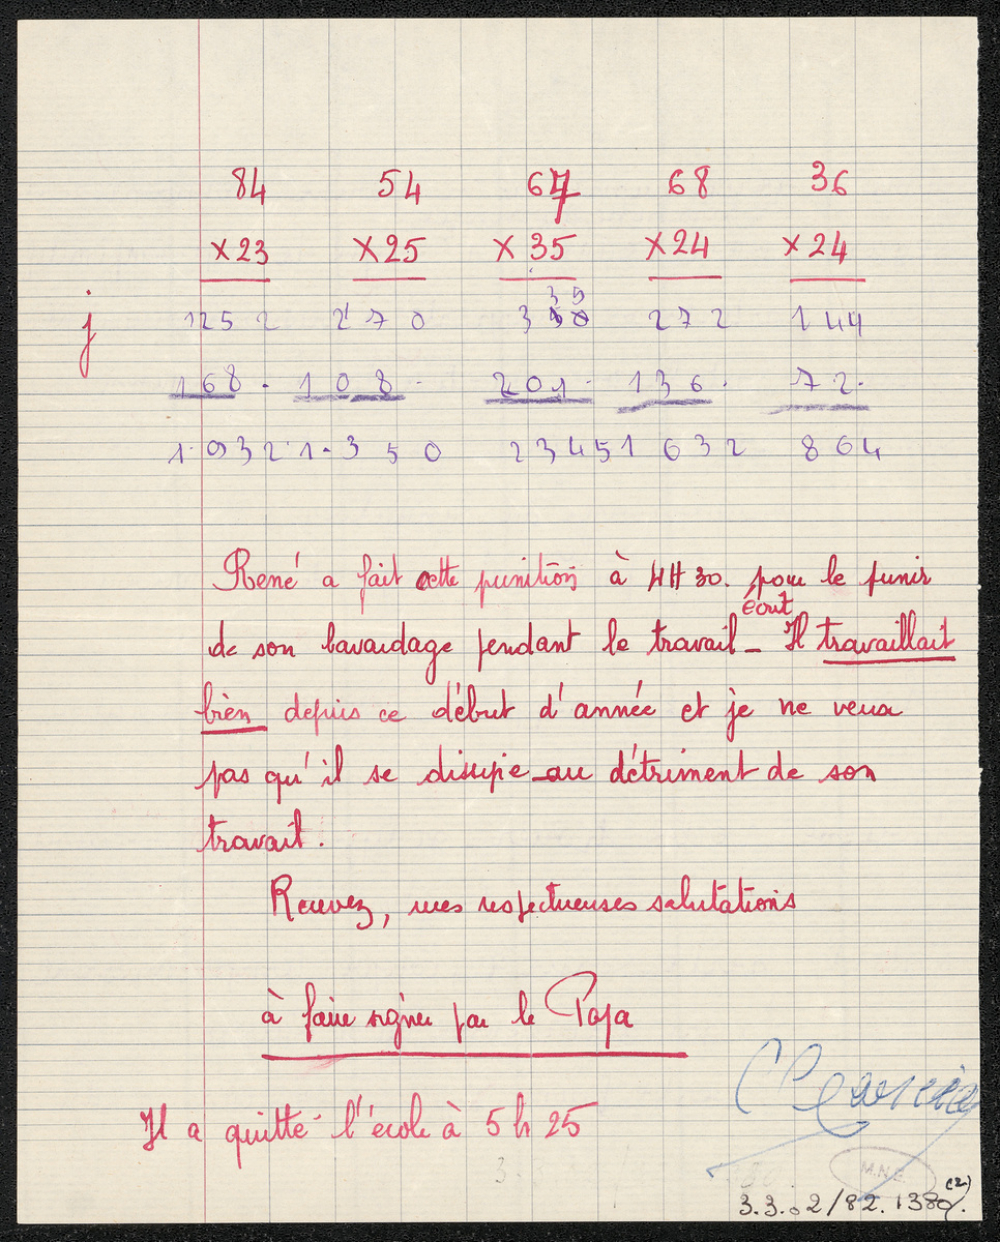 84 54 67 68 36
×23 ×25 ×35 ×24 ×24
j 1252 270 335 272 144
168. 108. 201. 136. 72.
1932 1350 2345 1632 864
René a fait cette punition à 4H30. pour le punir
de son bavardage pendant le travail_ Il travaillait
écrit
bien depuis ce début d'année et je ne veux
pas qu'il se dissipe au détriment de son
travail.
Recevez, mes respectueuses salutations
à faire signer par le Papa
Il a quitté l'école à 5h25
M.N.E.
3.3.02/82.1380. (2)